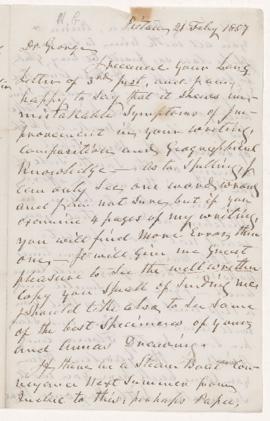 N. S.
Pictou 21 July 1857
Dr George
I received your Long
letter of 3rd inst, and am
happy to say that it shows un
mistakeable Symptoms of Im
provement in your writing,
Composition and Geographical
Knowledge — as to Spelling, I
can only see one word wrong
and I'm not sure, but if you
examine 4 pages of my writing
you will find more Errors than
one — It will Give me Great
pleasure to See the well written
Copy you speak of sending me
I should like also to See some
of the best Specimens of yours
and Annas Drawing.
If there is a Steam Boat Con
veyance Next Summer from
Quebec to this, perhaps Papa,